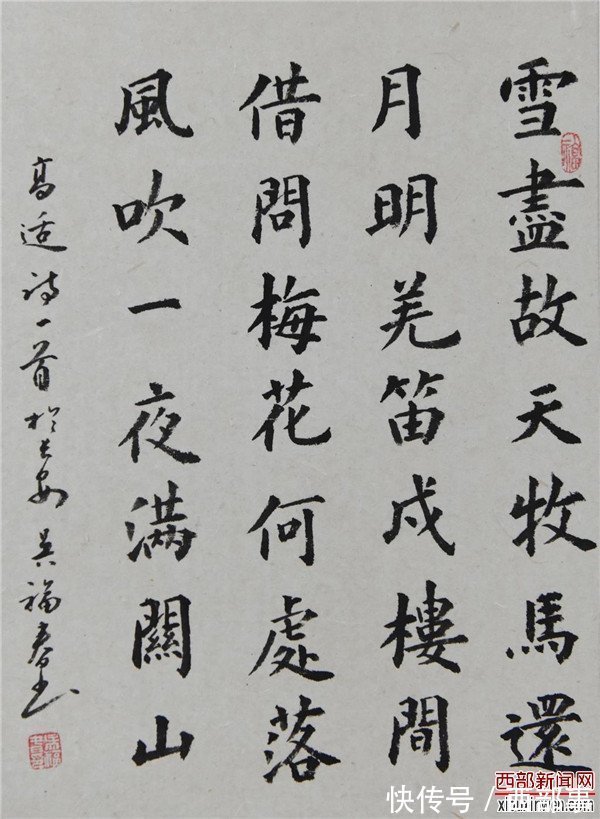 雪盡故天牧馬還
月明羌笛戍樓間
借問梅花何處落
風吹一夜滿關山
高适诗一首於长安吴福春书
西部新闻网
快传号/西部事